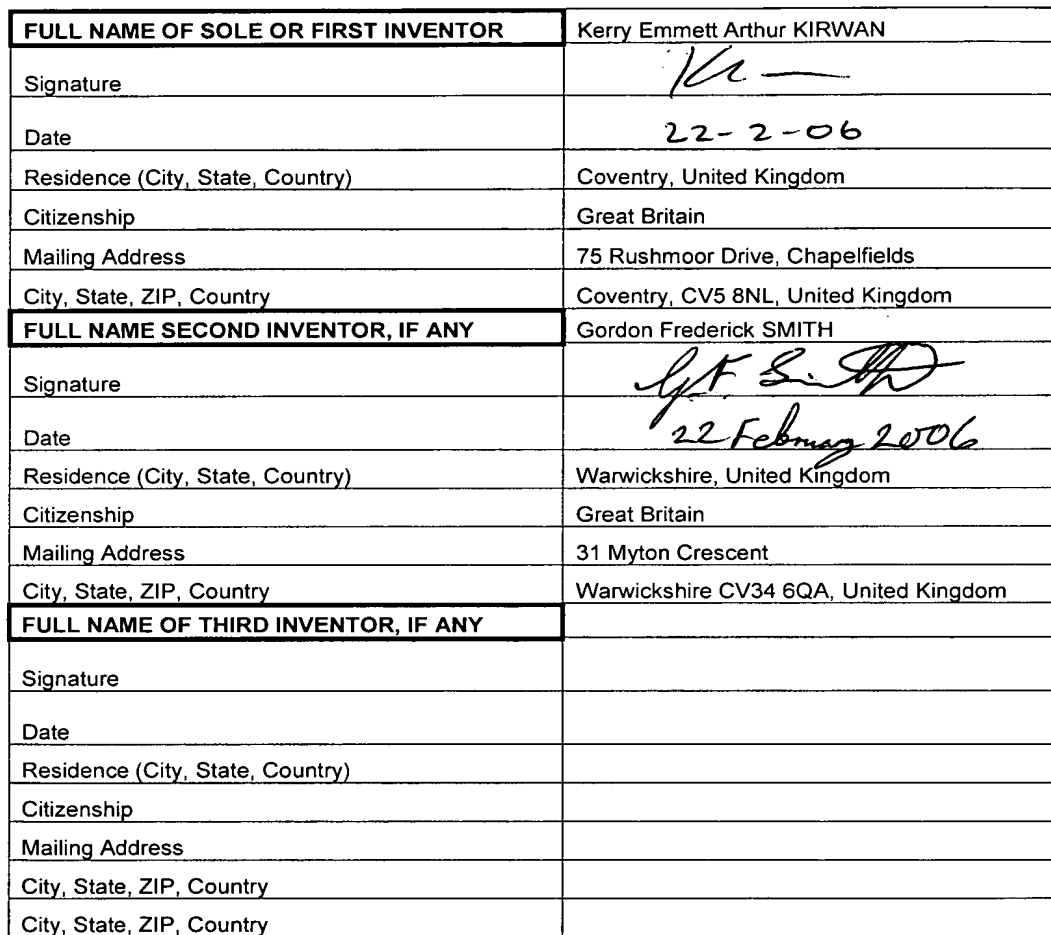 FULL NAME OF SOLE OR FIRST INVENTOR Kerry Emmett Arthur KIRWAN
Signature
Date 22-2-06
Residence (City, State, Country) Coventry, United Kingdom
Citizenship Great Britain
Mailing Address 75 Rushmoor Drive, Chapelfields
City, State, ZIP, Country Coventry, CV5 8NL, United Kingdom
FULL NAME SECOND INVENTOR, IF ANY Gordon Frederick SMITH
Signature G.F. Smith
Date 22 February 2006
Residence (City, State, Country) Warwickshire, United Kingdom
Citizenship Great Britain
Mailing Address 31 Myton Crescent
City, State, ZIP, Country Warwickshire CV34 6QA, United Kingdom
FULL NAME OF THIRD INVENTOR, IF ANY
Signature
Date
Residence (City, State, Country)
Citizenship
Mailing Address
City, State, ZIP, Country
City, State, ZIP, Country